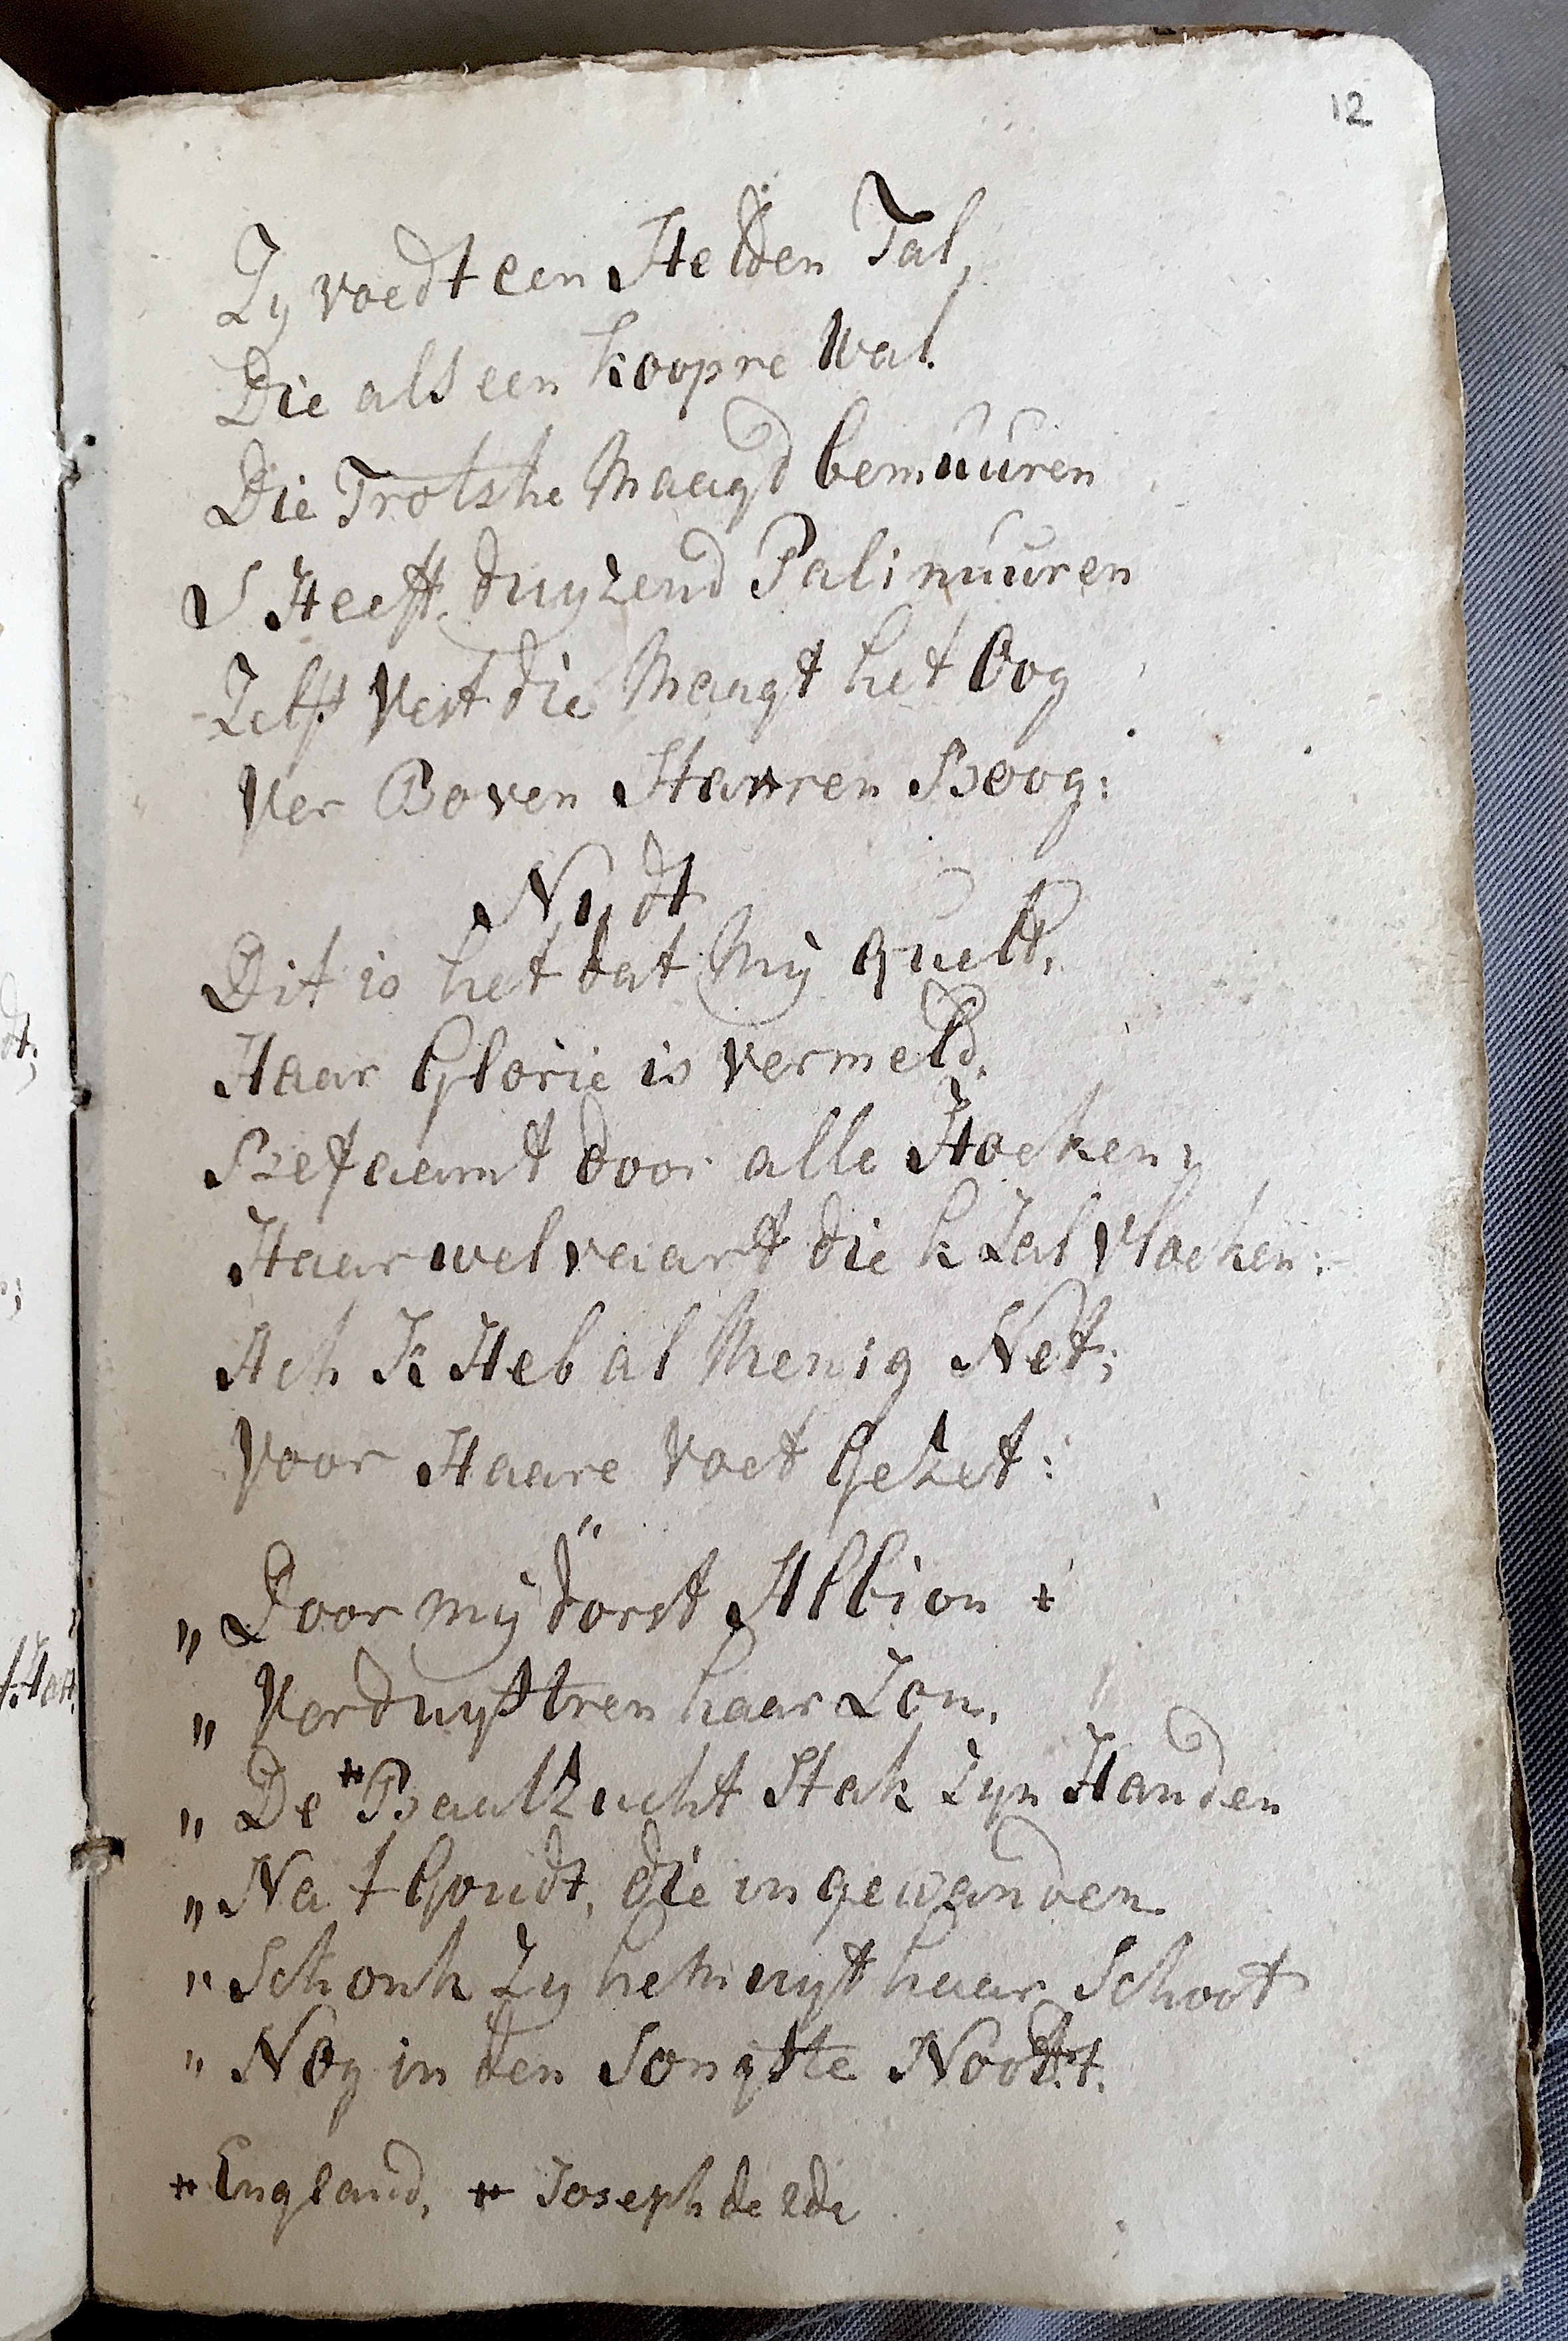 12
Zy voedt een Helden Tal,
Die als een koopre Wal.
Die Trotshe Maagd bemuuren
S Heeft duyzend Palinuuren
Zelfs Vest die Maagt het Oog
Ver Boven Starren Boog:
Nydt
Dit is het dat My quelt,
Haar Glorie is vermeld,
Befaamt door alle Hoeken;
Haar welvaardt die k Zal Vloeken:
Ach K Heb al Menig Net;
Voor Haare Voet Gezet:
"
„ Door mij dorst Albion *
„ Verduystren haar Zon,
„ De * Baatzucht Stak Zyn Handen
„ Na t Goudt, die ingewanden
„ Schonk Zy hem uyt haar Schoot
„ Nog in den Jongste Noodt.
* England, * Joseph de 2de
dt;
;